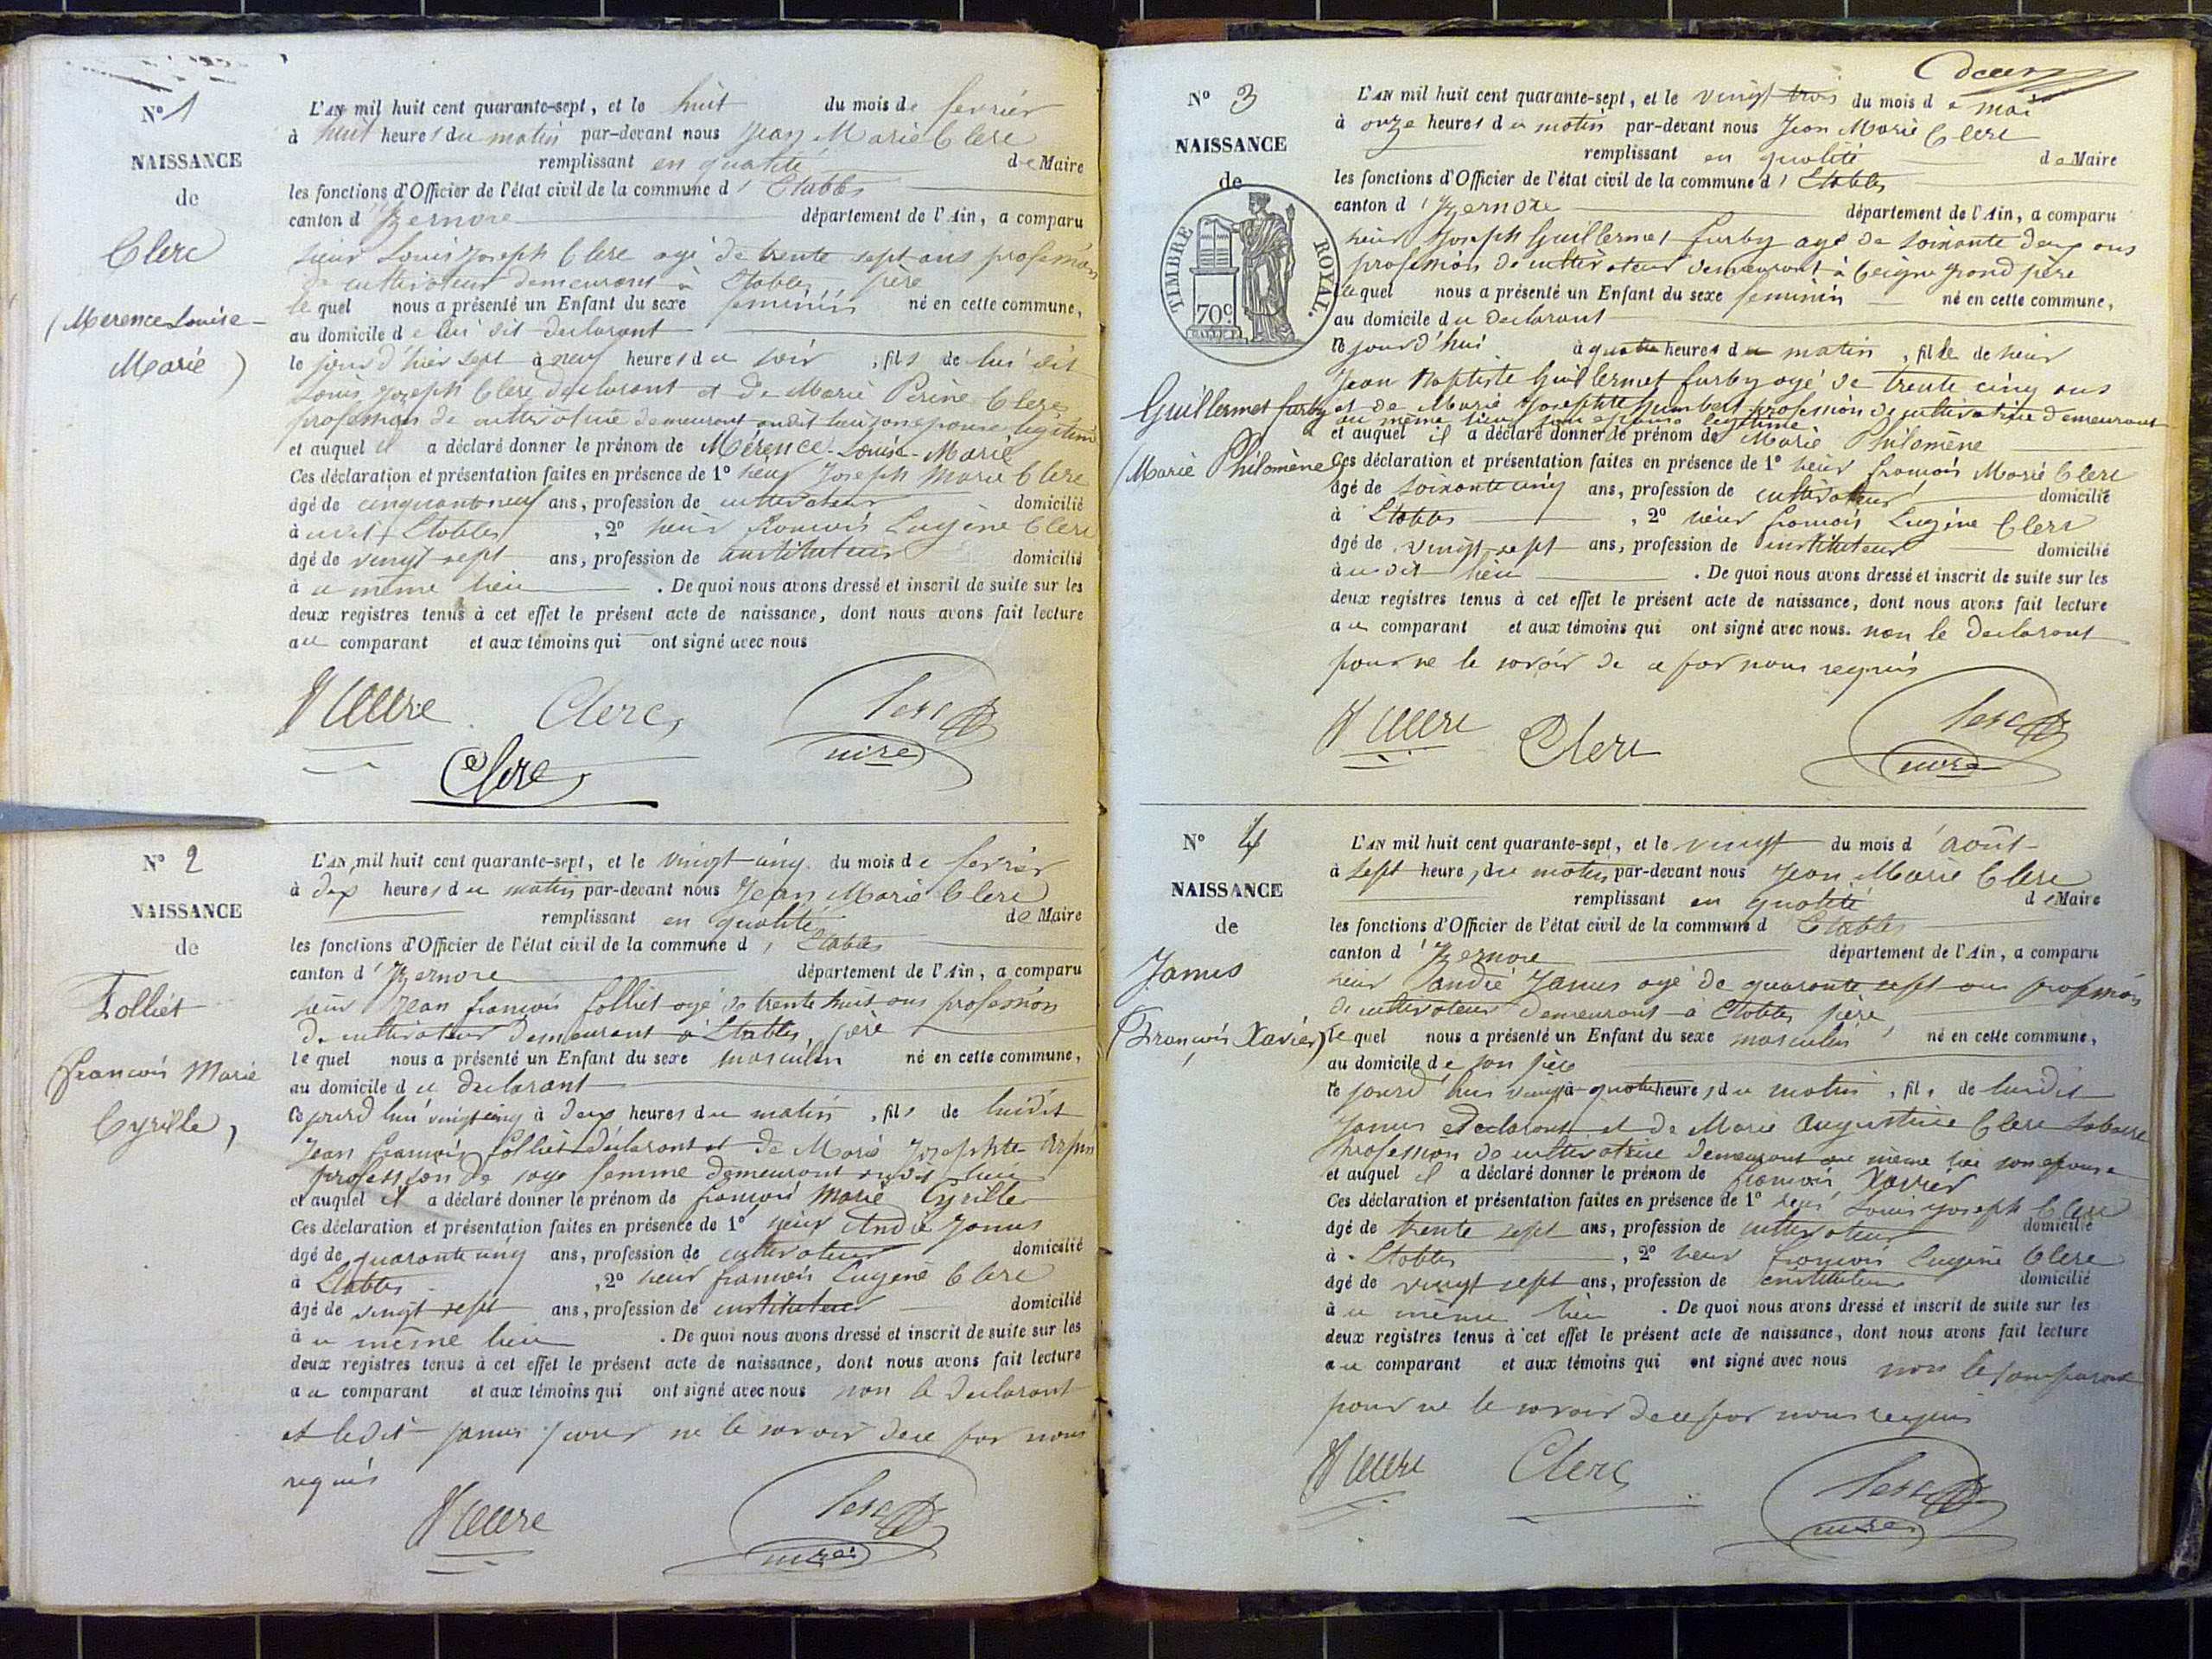 N° 1
NAISSANCE
de
Clerc
(Mérence Louise
Marie)
L'AN mil huit cent quarante-sept, et le huit du mois de fevrier
à huit heures du matin par-devant nous Jean Marie Clerc
remplissant en qualité de Maire
les fonctions d'Officier de l'état civil de la commune d'Etables
canton d'Izernore département de l'Ain, a comparu
sieur Louis Joseph Clerc agé de trente sept ans profession
de cultivateur demeurant à Etables, père
lequel nous a présenté un Enfant du sexe feminin né en cette commune,
au domicile de lui dit declarant
le jour d'hier sept à neuf heures du soir, fils de lui dit
Louis Joseph Clerc declarant et de Marie Perine Clerc
profession de cultivatrice demeurant audit lieu son epouse legitime
et auquel il a déclaré donner le prénom de Mérence-Louise-Marie
Ces déclaration et présentation faites en présence de 1° sieur Joseph Marie Clerc
âgé de cinquante neuf ans, profession de cultivateur domicilié
à Etables, 2° sieur francois Eugène Clerc
âgé de vingt sept ans, profession de instituteur domicilié
à u même lieu. De quoi nous avons dressé et inscrit de suite sur les
deux registres tenus à cet effet le présent acte de naissance, dont nous avons fait lecture
au comparant et aux témoins qui ont signé avec nous
Clerc
Clerc
Clerc
mire
N° 2
NAISSANCE
de
Folliet
(francois Marie
Cyrille)
L'AN mil huit cent quarante-sept, et le vingt cinq du mois de fevrier
à dix heures du matin par-devant nous Jean Marie Clerc
remplissant en qualité de Maire
les fonctions d'Officier de l'état civil de la commune d'Etables
canton d'Izernore département de l'Ain, a comparu
sieur Jean francois folliet agé de trente huit ans profession
de cultivateur demeurant à Etables, père
lequel nous a présenté un Enfant du sexe masculin né en cette commune,
au domicile du declarant
ce jourd'hui vingt cinq à deux heures du matin, fils de luidit
Jean francois folliet déclarant et de Marie Josephte
profession de sage femme demeurant audit lieu
et auquel il a déclaré donner le prénom de francois Marie Cyrille
Ces déclaration et présentation faites en présence de 1° sieur André Janus
âgé de quarante cinq ans, profession de cultivateur domicilié
à Etables, 2° sieur francois Eugène Clerc
âgé de vingt sept ans, profession de instituteur domicilié
à u même lieu. De quoi nous avons dressé et inscrit de suite sur les
deux registres tenus à cet effet le présent acte de naissance, dont nous avons fait lecture
au comparant et aux témoins qui ont signé avec nous non le declarant
et ledit Janus pour ne le savoir de ce par nous
requis
Clerc
mire
N° 3
NAISSANCE
de
TIMBRE ROYAL.
70c
Guillermet furby
(Marie Philomène)
L'AN mil huit cent quarante-sept, et le vingt trois du mois de mai
à onze heures du matin par-devant nous Jean Marie Clerc
remplissant en qualité de Maire
les fonctions d'Officier de l'état civil de la commune d'Etables
canton d'Izernore département de l'Ain, a comparu
sieur Joseph Guillermet furby agé de soixante deux ans
profession de cultivateur demeurant à Ceigne grand père
lequel nous a présenté un Enfant du sexe feminin né en cette commune,
au domicile du declarant
ce jourd'hui à quatre heures du matin, fille de sieur
Jean Baptiste Guillermet furby agé de trente cinq ans
et de Marie Josephte humbert profession de cultivatrice demeurant
au même lieu son epouse legitime
et auquel il a déclaré donner le prénom de Marie Philomène
Ces déclaration et présentation faites en présence de 1° sieur francois Marie Clerc
âgé de soixante cinq ans, profession de cultivateur domicilié
à Etables, 2° sieur francois Eugène Clerc
âgé de vingt sept ans, profession de instituteur domicilié
à u dit lieu. De quoi nous avons dressé et inscrit de suite sur les
deux registres tenus à cet effet le présent acte de naissance, dont nous avons fait lecture
au comparant et aux témoins qui ont signé avec nous. non le declarant
pour ne le savoir de ce par nous requis
Clerc
Clerc
mire
N° 4
NAISSANCE
de
Janus
(François Xavier)
L'AN mil huit cent quarante-sept, et le vingt du mois d'août
à sept heures du matin par-devant nous Jean Marie Clerc
remplissant en qualité de Maire
les fonctions d'Officier de l'état civil de la commune d Etables
canton d'Izernore département de l'Ain, a comparu
sieur andré Janus agé de quarante sept ans profession
de cultivateur demeurant à Etables père
lequel nous a présenté un Enfant du sexe masculin né en cette commune,
au domicile de son père
ce jourd'hui vingt à quatre heures du matin, fils de luidit
Janus declarant et de Marie Augustine Clerc
profession de cultivatrice demeurant au même lieu son epouse
et auquel il a déclaré donner le prénom de francois Xavier
Ces déclaration et présentation faites en présence de 1° sieur Louis Joseph Clerc
âgé de trente sept ans, profession de cultivateur domicilié
à Etables, 2° sieur francois Eugène Clerc
âgé de vingt sept ans, profession de instituteur domicilié
à u même lieu. De quoi nous avons dressé et inscrit de suite sur les
deux registres tenus à cet effet le présent acte de naissance, dont nous avons fait lecture
au comparant et aux témoins qui ont signé avec nous non le comparant
pour ne le savoir de ce par nous requis
Clerc
Clerc
mire